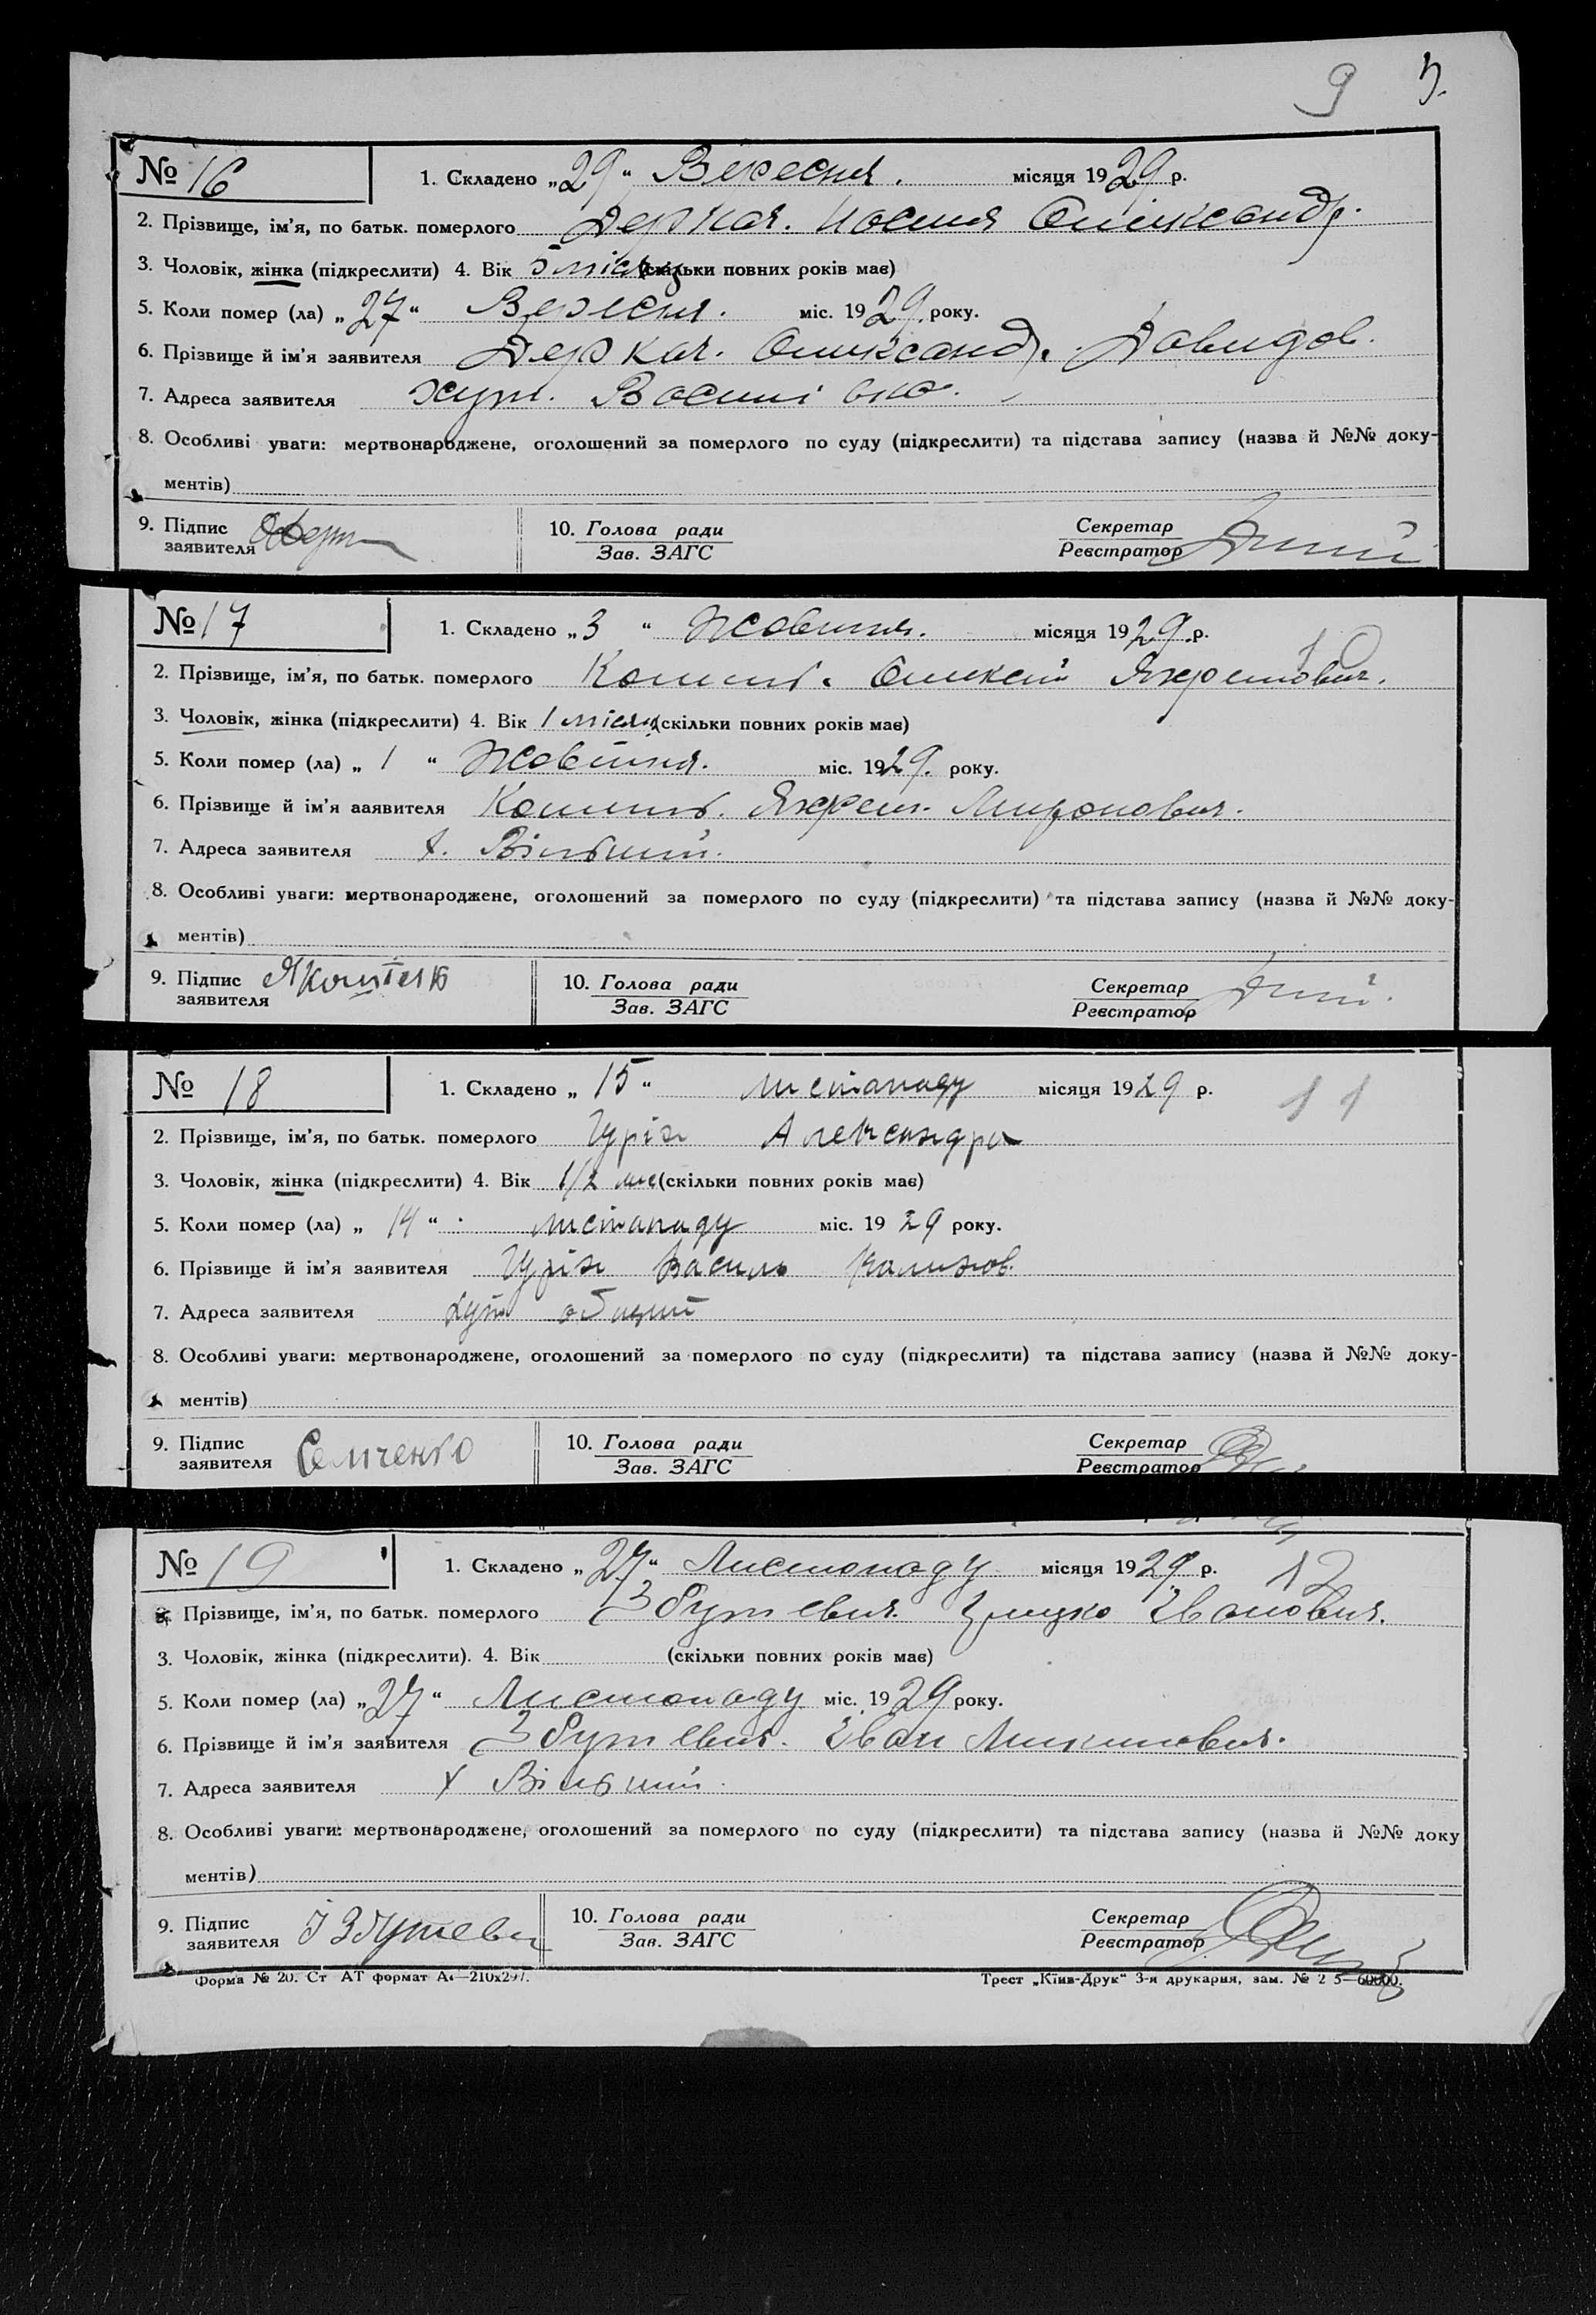 9 5.
№ 16 1. Складено „29“ Вересня. місяця 1929 р.
2. Прізвище, ім’я, по батьк. померлого Деркач. Олександ.
3. Чоловік, жінка (підкреслити) 4. Вік 5 місяц (скільки повних років має)
5. Коли помер (ла) „27“ Вересня. міс. 1929. року.
6. Прізвище й ім’я заявителя Деркач. Олександ. Давидов.
7. Адреса заявителя хут. Василівка.
8. Особливі уваги: мертвонароджене, оголошений за померлого по суду (підкреслити) та підстава запису (назва й №№ доку-
ментів)
9. Підпис заявителя 10. Голова ради Зав. ЗАГС Секретар Реєстратор
№ 17 1. Складено „3“ Жовтня. місяця 1929 р. 10
2. Прізвище, ім’я, по батьк. померлого Олексій Яхремович.
3. Чоловік, жінка (підкреслити) 4. Вік 1 місяц (скільки повних років має)
5. Коли помер (ла) „1“ Жовтня. міс. 1929. року.
6. Прізвище й ім’я ааявителя Яхрем. Миронович.
7. Адреса заявителя х. Вільний.
8. Особливі уваги: мертвонароджене, оголошений за померлого по суду (підкреслити) та підстава запису (назва й №№ доку-
ментів)
9. Підпис заявителя 10. Голова ради Зав. ЗАГС Секретар Реєстратор
№ 18 1. Складено „15“ листападу місяця 1929 р. 11
2. Прізвище, ім’я, по батьк. померлого Гурін Александра
3. Чоловік, жінка (підкреслити) 4. Вік 1/2 міс (скільки повних років має)
5. Коли помер (ла) „14“ листападу міс. 1929 року.
6. Прізвище й ім’я заявителя Гурін Василь Калинов.
7. Адреса заявителя хут
8. Особливі уваги: мертвонароджене, оголошений за померлого по суду (підкреслити) та підстава запису (назва й №№ доку-
ментів)
9. Підпис заявителя Семченко 10. Голова ради Зав. ЗАГС Секретар Реєстратор
№ 19 1. Складено „27“ Листопаду місяця 1929 р. 12
2. Прізвище, ім’я, по батьк. померлого Збутевич. Грицко Іванович.
3. Чоловік, жінка (підкреслити). 4. Вік (скільки повних років має)
5. Коли помер (ла) „27“ Листопаду міс. 1929 року.
6. Прізвище й ім’я заявителя Збутевич. Іван Микитович.
7. Адреса заявителя х Вільний.
8. Особливі уваги: мертвонароджене, оголошений за померлого по суду (підкреслити) та підстава запису (назва й №№ доку
ментів)
9. Підпис заявителя І Збутевич 10. Голова ради Зав. ЗАГС Секретар Реєстратор
Форма № 20. Ст АТ формат А4—210x297. Трест „Київ-Друк“ 3-я друкарня, зам. № 2 5—60000.